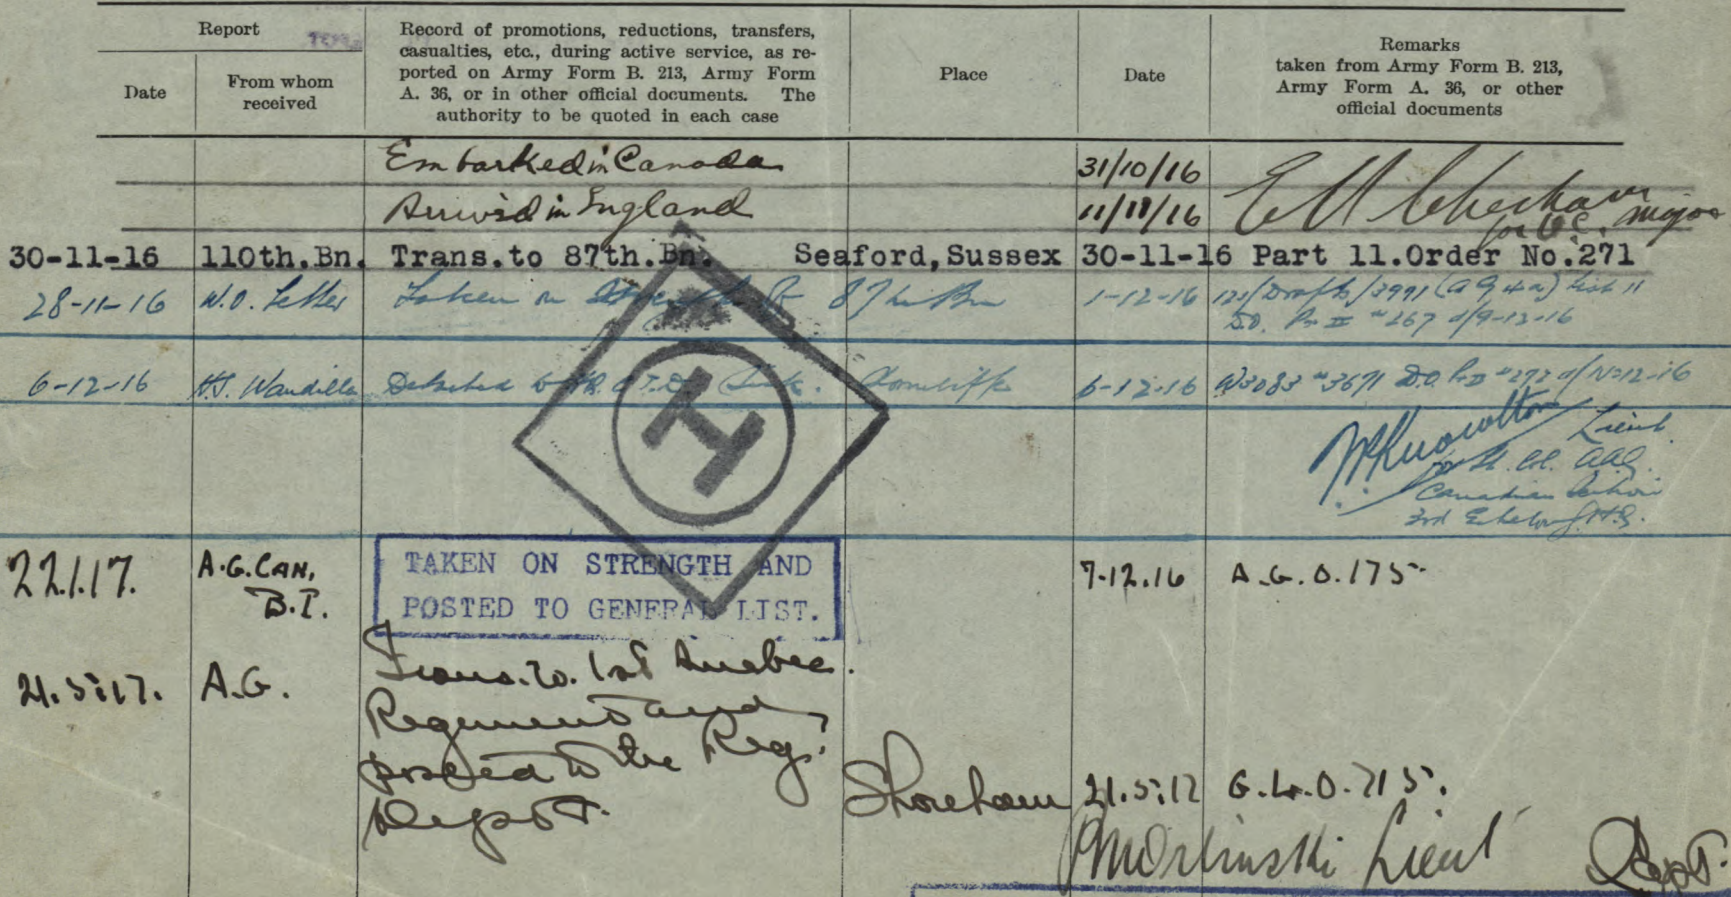 Report
Date
From whom
received
Record of promotions, reductions, transfers,
casualties, etc., during active service, as re-
ported on Army Form B. 213, Army Form
A. 36, or in other official documents. The
authority to be quoted in each case
Place
Date
Remarks
taken from Army Form B. 213,
Army Form A. 36, or other
official documents
Embarked in Canada 31/10/16
Arrived in England 11/11/16
Major
for O.C.
30-11-16 110th.Bn. Trans.to 87th.Bn. Seaford,Sussex 30-11-16 Part 11.Order No.271
28-11-16 W.O. Letter Taken on Strength 87th Bn 1-12-16 121/Drafts/3991 (A G 4 a) List 11
D.O. Pt II #267 d/9-12-16
6-12-16 6-12-16 W3083 #3671 D.O. Pt II #272 d/
Lieut.
for Lt. Col. AAG.
Canadian Section
3rd Echelon G.H.Q.
H
22.1.17. A.G.CAN. TAKEN ON STRENGTH AND 7.12.16 A.G.O.175.
B.I. POSTED TO GENERAL LIST.
21.5.17. A.G. Trans. to. 1st Quebec.
Regiment and
posted to the Reg.
Depot. Shoreham 21.5.17 G.L.O.715.
Lieut